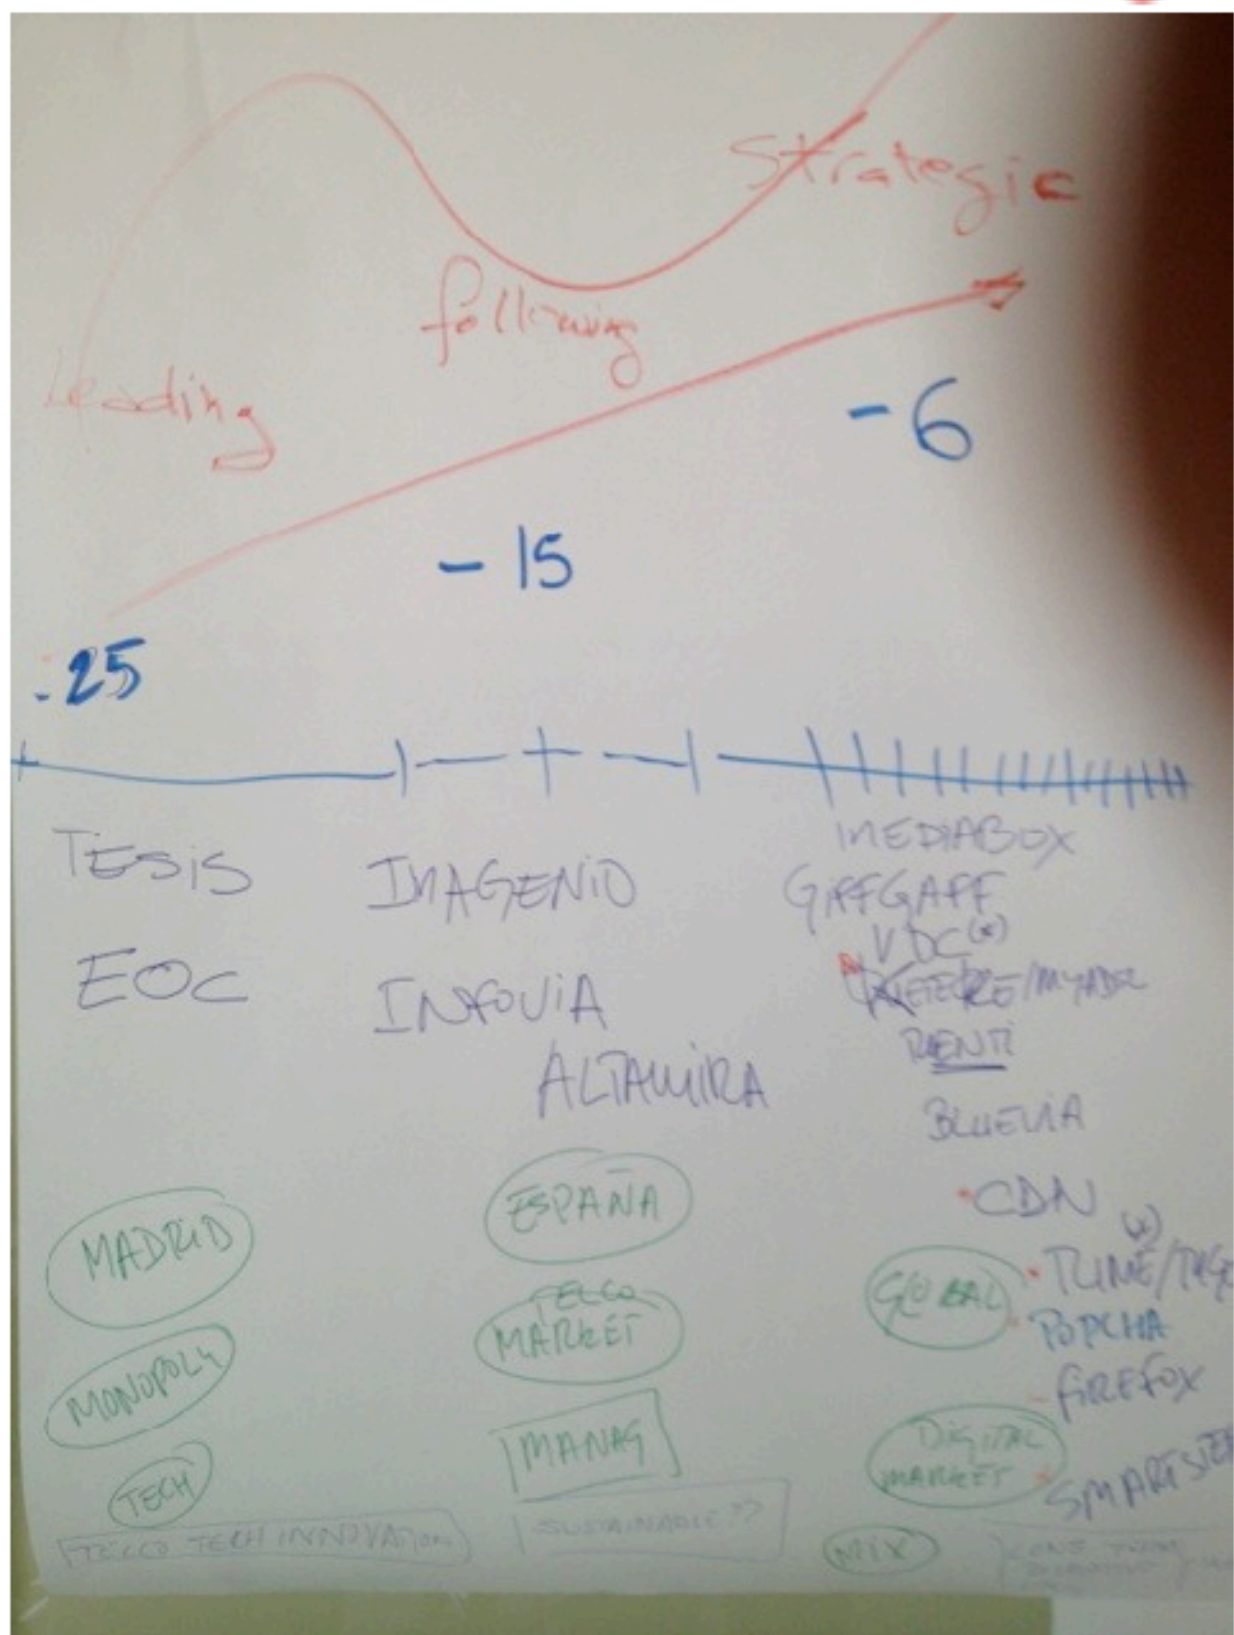 Strategic
following
Leading
- 6
- 15
- 25
TESIS
EOC
IMAGENIO
INFOVIA
ALTAMIRA
MEDIABOX
GIFFGAFF
VDC (*)
RENTI
BLUEVIA
• CDN
(*)
• TUME/
POPCHA
- FIREFOX
MADRID
MONOPOLY
TECH
TELCO TECH INNOVATION
ESPAÑA
TELCO
MARKET
MANAG
SUSTAINABLE??
GLOBAL
DIGITAL
MARKET
MIX